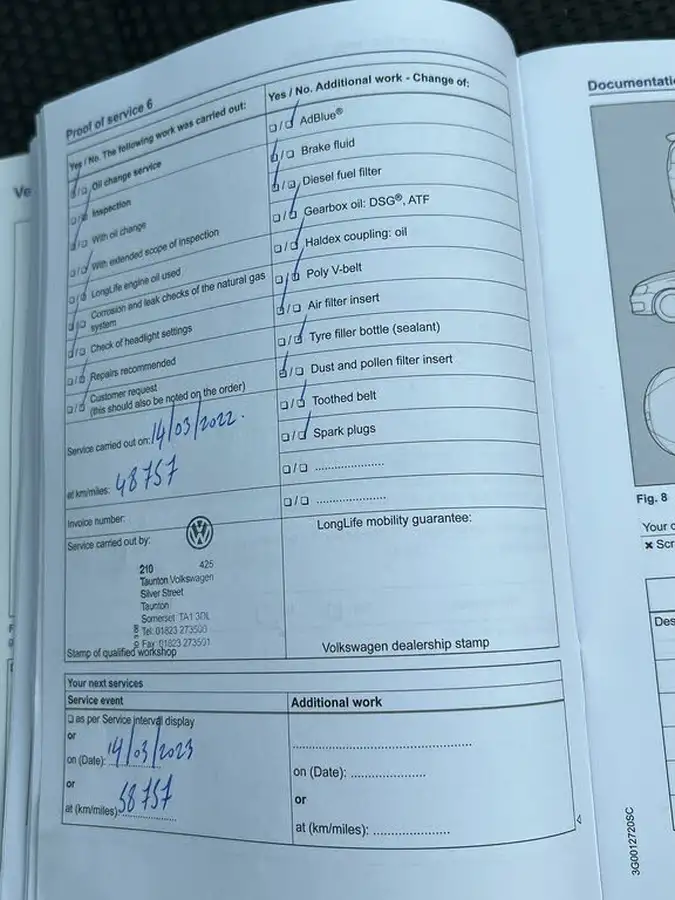 Proof of service 6
Yes / No. The following work was carried out:
☐/☐ Oil change service
☐/☐ Inspection
☐/☐ With oil change
☐/☐ With extended scope of inspection
☐/☐ LongLife engine oil used
☐/☐ Corrosion and leak checks of the natural gas
system
☐/☐ Check of headlight settings
☐/☐ Repairs recommended
☐/☐ Customer request
(this should also be noted on the order)
Service carried out on: 14/03/2022.
at km/miles: 48757
Invoice number:
Service carried out by:
210 425
Taunton Volkswagen
Silver Street
Taunton
Somerset TA1 3DL
Tel: 01823 273500
Fax 01823 273501
Stamp of qualified workshop
Yes / No. Additional work - Change of:
☐/☐ AdBlue®
☐/☐ Brake fluid
☐/☐ Diesel fuel filter
☐/☐ Gearbox oil: DSG®, ATF
☐/☐ Haldex coupling: oil
☐/☐ Poly V-belt
☐/☐ Air filter insert
☐/☐ Tyre filler bottle (sealant)
☐/☐ Dust and pollen filter insert
☐/☐ Toothed belt
☐/☐ Spark plugs
☐/☐ ....................
☐/☐ ....................
LongLife mobility guarantee:
Volkswagen dealership stamp
Your next services
Service event
☐ as per Service interval display
or
on (Date): 14/03/2023
or
at (km/miles): 58757
Additional work
on (Date): ....................
or
at (km/miles): ....................
Documentati
Fig. 8
Your
× Scr
Des
3G0012720SC
Ve